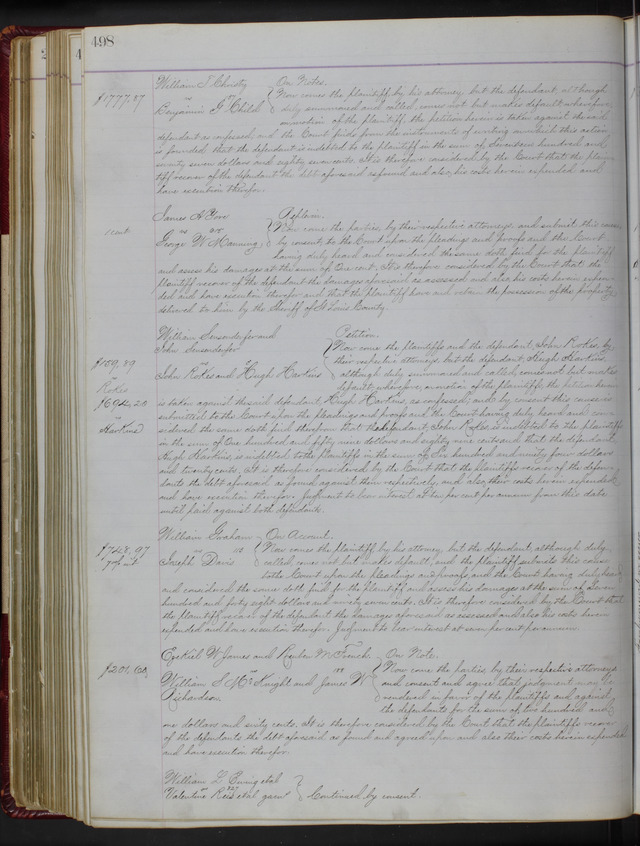 498
William S Christy On Notes.
$1777,87 vs Now comes the plaintiff, by his attorney but the defendant, although
Benjamin G Child duly summoned and called, comes not but makes default wherefore,
on motion of the plaintiff the petition herein is taken against the said
defendant as confessed and the Court finds from the instruments of writing on which this action
is founded that the defendant is indebted to the plaintiff in the sum of Seventeen hundred and
seventy seven dollars and eighty seven cents. It is therefore considered by the Court that the plain-
tiff recover of the defendant the debt aforesaid as found and also, his costs herein expended and
have execution therefor.
James H
Replevin.
1 cent vs Now come the parties by their respective attorneys and submit this cause
George W Manning, by consent, to the Court upon the pleadings and proofs and the Court
having duly heard and considered the same doth find for the plaintiff
and assess his damages at the sum of One cent. It is therefore considered by the Court that the
plaintiff recover of the defendant the damages aforesaid as assessed and also his costs herein expen-
ded and have execution therefor and that the plaintiff have and retain the possession of the property
delivered to him by the Sheriff of St Louis County.
William Sensenderfer and Petition.
John Sensenderfer Now come the plaintiffs and the defendant, John Rokes, by
$159,89 vs their respective attorneys but the defendant, Hugh Harkins
John Rokes and Hugh Harkins although duly summoned and called, comes not but makes
Rokes default; wherefore, on motion of the plaintiffs the petition herein
$694,20 is taken against the said defendant, Hugh Harkins, as confessed and by consent this cause is
submitted to the Court upon the pleadings and proofs and the Court having duly heard and con-
Harkins sidered the same doth find therefrom that the defendant, John Rokes, is indebted to the plaintiffs
in the sum of One hundred and fifty nine dollars and eighty nine cents and that the defendant
Hugh Harkins, is indebted to the plaintiffs in the sum of Six hundred and ninety four dollars
and twenty cents, It is therefore considered by the Court that the plaintiffs recover of the defen-
dants the debt aforesaid as found against them respectively, and also, their costs herein expended
and have execution therefor. Judgment to bear interest at ten per cent per annum from this date
until paid against both defendants.
William Graham On Account.
$748,97 vs Now comes the plaintiff by his attorney, but the defendant, although duly
7 pr ct. Joseph Davis called, comes not but makes default, and the plaintiff submits this cause
to the Court upon the pleadings and proofs and the Court having duly heard
and considered the same doth find for the plaintiff and assess his damages at the sum of Seven
hundred and forty eight dollars and ninety seven cents. It is therefore considered by the Court that
the plaintiff recover of the defendant the damages aforesaid as assessed and also his costs herein
expended and have execution therefor. Judgment to bear interest at seven per cent per annum
Ezekiel W James and Reuben M French On Note,
$201,60 vs Now come the parties by their respective attorneys
William S McKnight and James W and consent and agree that judgment may be
Richardson rendered in favor of the plaintiffs and against
the defendants for the sum of two hundred and
one dollars and sixty cents, It is therefore considered by the Court that the plaintiffs recover
of the defendants the debt aforesaid as found and agreed upon and also their costs herein expended
and have execution therefor.
William L et al
Valentine Reis et al Continued by consent